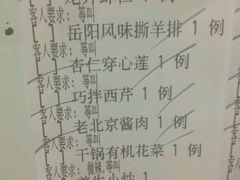 客人要求：等叫
岳阳风味撕羊排 1 例
客人要求：等叫
杏仁穿心莲 1 例
客人要求：等叫
巧拌西芹 1 例
客人要求：等叫
老北京酱肉 1 例
客人要求：等叫
干锅有机花菜 1 例
客人要求：微辣，等叫